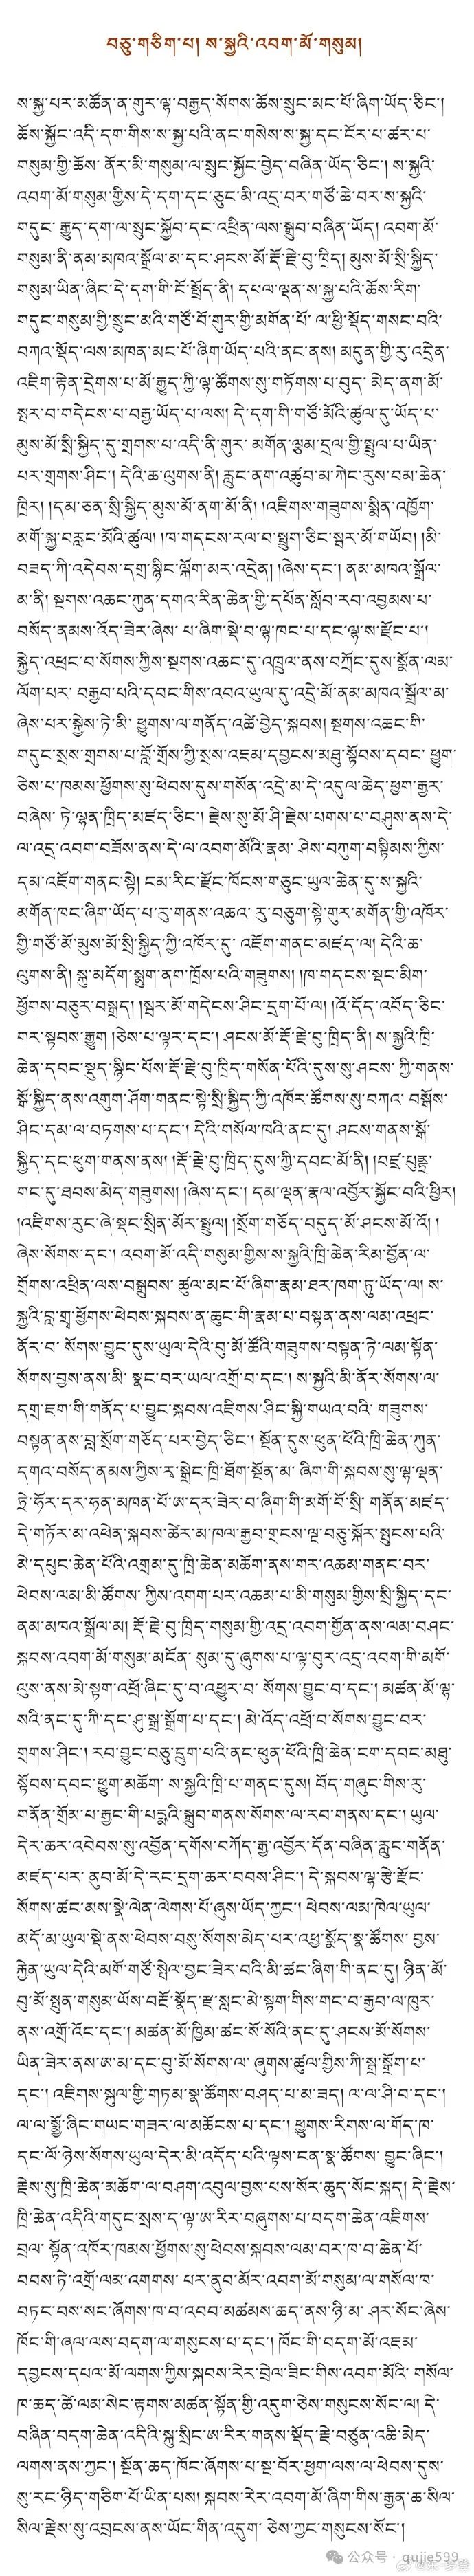 བཅུ་གཅིག་པ། ས་སྐྱའི་འབག་མོ་གསུམ།
ས་སྐྱ་པར་མཚོན་ན་གུར་ལྷ་བརྒྱད་སོགས་ཆོས་སྲུང་མང་པོ་ཞིག་ཡོད་ཅིང་།
ཆོས་སྐྱོང་འདི་དག་གིས་ས་སྐྱ་པའི་ནང་གསེས་ས་སྐྱ་དང་ངོར་པ་ཚར་པ་
གསུམ་གྱི་ཆོས་ ནོར་མི་གསུམ་ལ་སྲུང་སྐྱོང་བྱེད་བཞིན་ཡོད་ཅིང་། ས་སྐྱའི་
འབག་མོ་གསུམ་གྱིས་དེ་དག་དང་ཅུང་མི་འདྲ་བར་གཙོ་ཆེ་བར་ས་སྐྱའི་
གདུང་ རྒྱུད་དག་ལ་སྲུང་སྐྱོབ་དང་འཕྲིན་ལས་སྒྲུབ་བཞིན་ཡོད། འབག་མོ་
གསུམ་ནི་ནམ་མཁའ་སྒྲོལ་མ་དང་ཤངས་མོ་རྡོ་རྗེ་བུ་ཁྲིད། མུས་མོ་སྲི་སྐྱིད་
གསུམ་ཡིན་ཞིང་དེ་དག་གི་ངོ་སྤྲོད་ནི། དཔལ་ལྡན་ས་སྐྱ་པའི་ཆོས་རིག་
གདུང་གསུམ་གྱི་སྲུང་མའི་གཙོ་བོ་གུར་གྱི་མགོན་པོ་ ལ་ཕྱི་སྡོད་གསང་བའི་
བཀའ་སྡོད་ལས་མཁན་མང་པོ་ཞིག་ཡོད་པའི་ནང་ནས། མདུན་གྱི་རུ་འདྲེན་
འཇིག་རྟེན་དྲེགས་པ་མོ་རྒྱུད་ཀྱི་ལྷ་ཚོགས་སུ་གཏོགས་པ་བུད་ མེད་ནག་མོ་
སྤར་བ་གདེངས་པ་བརྒྱ་ཡོད་པ་ལས། དེ་དག་གི་གཙོ་མོའི་ཚུལ་དུ་ཡོད་པ་
མུས་མོ་སྲི་སྐྱིད་དུ་གྲགས་པ་འདི་ནི་གུར་ མགོན་ལྕམ་དྲལ་གྱི་སྤྲུལ་པ་ཡིན་
པར་གྲགས་ཤིང་། དེའི་ཆ་ལུགས་ནི། རླུང་ནག་འཚུབ་མ་ཀེང་རུས་བམ་ཆེན་
ཁྲིར། །དམ་ཅན་སྲི་སྐྱིད་མུས་མོ་ནག་མོ་ནི། །འཇིགས་གཟུགས་སྨིན་འཁྱོག་
མགོ་སྐྱ་བརླང་མོའི་ཚུལ། །ཁ་གདངས་རལ་བ་སྤྲུག་ཅིང་སྦར་མོ་གཡོབ། །མི་
བཟད་ཀི་འདེབས་དགྲ་སྙིང་ལྐོག་མར་འདྲེན། །ཞེས་དང་། ནམ་མཁའ་སྒྲོལ་
མ་ནི། སྔགས་འཆང་ཀུན་དགའ་རིན་ཆེན་གྱི་དཔོན་སློབ་རབ་འབྱམས་པ་
བསོད་ནམས་འོད་ཟེར་ཞེས་ པ་ཞིག་སྡེ་བ་ལྷ་ཁང་པ་དང་ལྷ་ས་རྫོང་པ་།
སྐྱེད་འཕྲང་བ་སོགས་ཀྱིས་སྔགས་འཆང་དུ་འཁྲུལ་ནས་བཀྲོང་དུས་སྨོན་ལམ་
ལོག་པར་ བརྒྱབ་པའི་དབང་གིས་འབའ་ཡུལ་དུ་འདྲེ་མོ་ནམ་མཁའ་སྒྲོལ་མ་
ཞེས་པར་སྐྱེས་ཏེ་མི་ ཕྱུགས་ལ་གནོད་འཚེ་བྱེད་སྐབས། སྔགས་འཆང་གི་
གདུང་སྲས་གྲགས་པ་བློ་གྲོས་ཀྱི་སྲས་འཇམ་དབྱངས་མཐུ་སྟོབས་དབང་ ཕྱུག་
ཅེས་པ་ཁམས་ཕྱོགས་སུ་ཕེབས་དུས་གསོན་འདྲེ་མ་དེ་འདུལ་ཆེད་ཕྱག་རྒྱར་
བཞེས་ ཏེ་ལྷན་ཁྲིད་མཛད་ཅིང་། རྗེས་སུ་མོ་ཤི་རྗེས་པགས་པ་བཤུས་ནས་དེ་
ལ་འདྲ་འབག་བཟོས་ནས་དེ་ལ་འབག་མོའི་རྣམ་ ཤེས་བཀུག་བསྟིམས་ཀྱིས་
དམ་འཇོག་གནང་སྟེ། ངམ་རིང་རྫོང་ཁོངས་གཅུང་ཡུལ་ཆེན་དུ་ས་སྐྱའི་
མགོན་ཁང་ཞིག་ཡོད་པ་རུ་གནས་འཆའ་ རུ་བཅུག་སྟེ་གུར་མགོན་གྱི་འཁོར་
གྱི་གཙོ་མོ་མུས་མོ་སྲི་སྐྱིད་ཀྱི་འཁོར་དུ་ འཇོག་གནང་མཛད་ལ། དེའི་ཆ་
ལུགས་ནི། སྐུ་མདོག་སྨུག་ནག་ཁྲོས་པའི་གཟུགས། །ཁ་གདངས་སྡང་མིག་
ཕྱོགས་བཅུར་བསྒྲད། །སྦར་མོ་གདེངས་ཤིང་དྲག་པོ་ལ། །འོ་དོད་འབོད་ཅིང་
གར་སྟབས་རྒྱུག །ཅེས་པ་ལྟར་དང་། ཤངས་མོ་རྡོ་རྗེ་བུ་ཁྲིད་ནི། ས་སྐྱའི་ཁྲི་
ཆེན་དབང་སྡུད་སྙིང་པོས་རྡོ་རྗེ་བུ་ཁྲིད་གསོན་པོའི་དུས་སུ་ཤངས་ ཀྱི་གནས་
སྒོ་སྐྱིད་ནས་འགུག་ཤོག་གནང་སྟེ་སྲི་སྐྱིད་ཀྱི་འཁོར་ཚོགས་སུ་བཀའ་ བསྒོས་
ཤིང་དམ་ལ་བཏགས་པ་དང་། དེའི་གསོལ་ཁའི་ནང་དུ། ཤངས་གནས་སྒོ་
སྐྱིད་དང་ཕུག་གནས་ནས། །རྡོ་རྗེ་བུ་ཁྲིད་དུས་ཀྱི་དབང་མོ་ནི། །བཛྲ་པུཎྜྲ་
གང་དུ་ཐབས་མེད་གཟུགས། །ཞེས་དང་། དམ་ལྡན་རྣལ་འབྱོར་སྐྱོང་བའི་ཕྱིར།
།འཇིགས་རུང་ཞེ་སྡང་སྲིན་མོར་སྤྲུལ། །སྲོག་གཅོད་བདུད་མོ་ཤངས་མོ་འོ། །
ཞེས་སོགས་དང་། འབག་མོ་འདི་གསུམ་གྱིས་ས་སྐྱའི་ཁྲི་ཆེན་རིམ་བྱོན་ལ་
གྲོགས་འཕྲིན་ལས་བསྒྲུབས་ ཚུལ་མང་པོ་ཞིག་རྣམ་ཐར་ཁག་ཏུ་ཡོད་ལ། ས་
སྐྱའི་བླ་གྲྭ་ཕྱོགས་ཕེབས་སྐབས་ན་ཆུང་གི་རྣམ་པ་བསྟན་ནས་ལམ་འཕྲང་
ནོར་བ་ སོགས་བྱུང་དུས་ཡུལ་དེའི་བུ་མོ་ཚོའི་གཟུགས་བསྟན་ཏེ་ལམ་སྟོན་
སོགས་བྱས་ནས་མི་ སྣང་བར་ཡལ་འགྲོ་བ་དང་། ས་སྐྱའི་མི་ནོར་སོགས་ལ་
དགྲ་ཇག་གི་གནོད་པ་བྱུང་སྐབས་འཇིགས་ཤིང་སྐྱི་གཡའ་བའི་ གཟུགས་
བསྟན་ནས་བླ་སྲོག་གཅོད་པར་བྱེད་ཅིང་། སྔོན་དུས་ཕུན་ཕོའི་ཁྲི་ཆེན་ཀུན་
དགའ་བསོད་ནམས་ཀྱིས་རྭ་སྒྲེང་ཁྲི་ཐོག་སྔོན་མ་ ཞིག་གི་སྐབས་སུ་ལྷ་ལྡན་
ཌེ་ཧོར་དར་ཧན་མཁན་པོ་ཨ་དར་ཟེར་བ་ཞིག་གི་མགོ་བོ་སྲི་ གནོན་མཛད་
དེ་གཏོར་མ་འཕེན་སྐབས་ཚེར་མ་ཁལ་རྒྱབ་གྲངས་ལྔ་བཅུ་སྐོར་སྤུངས་པའི་
མེ་དཔུང་ཆེན་པོའི་འགྲམ་དུ་ཁྲི་ཆེན་མཆོག་ནས་གར་འཆམ་གནང་བར་
ཕེབས་ལམ་མི་ཚོགས་ ཀྱིས་འགག་པར་འཆམ་པ་མི་གསུམ་གྱིས་སྲི་སྐྱིད་དང་
ནམ་མཁའ་སྒྲོལ་མ། རྡོ་རྗེ་བུ་ཁྲིད་གསུམ་གྱི་འདྲ་འབག་གྱོན་ནས་ལམ་བཤང་
སྐབས་འབག་མོ་གསུམ་མངོན་ སུམ་དུ་ཞུགས་པ་ལྟ་བུར་འདྲ་འབག་གི་མགོ་
ལུས་ནས་མེ་སྟག་འཕྲོ་ཞིང་དུ་བ་འཕྱུར་བ་ སོགས་བྱུང་བ་དང་། མཚན་མོ་ལྷ་
སའི་ནང་དུ་ཀི་དང་ཤུ་སྒྲ་སྒྲོག་པ་དང་། མེ་འོད་འཕྲོ་བ་སོགས་བྱུང་བར་
གྲགས་ཤིང་། རབ་བྱུང་བཅུ་དྲུག་པའི་ནང་ཕུན་ཕོའི་ཁྲི་ཆེན་ངག་དབང་མཐུ་
སྟོབས་དབང་ཕྱུག་མཆོག་ ས་སྐྱའི་ཁྲི་པ་གནང་དུས། བོད་གཞུང་གིས་རུ་
གནོན་གྲོམ་པ་རྒྱང་གི་པདྨའི་སྒྲུབ་གནས་སོགས་ལ་རབ་གནས་དང་། ཡུལ་
དེར་ཆར་འབེབས་སུ་འབྱོན་དགོས་བཀོད་རྒྱ་འབྱོར་དོན་བཞིན་རླུང་གནོན་
མཛད་པར་ ནུབ་མོ་དེ་རང་དྲག་ཆར་བབས་ཤིང་། དེ་སྐབས་ལྷ་རྩེ་རྫོང་
སོགས་ཚང་མས་སྣེ་ལེན་ལེགས་པོ་ཞུས་ཡོད་ཀྱང་། ཕེབས་ལམ་ཁེལ་ཡུལ་
མདོ་མ་ཡུལ་སྡེ་ནས་ཕེབས་བསུ་སོགས་མེད་པར་འཕྱ་སྨོད་སྣ་ཚོགས་ བྱས་
རྐྱེན་ཡུལ་དེའི་མགོ་གཙོ་སྤེལ་བྱང་ཟེར་བའི་མི་ཚང་ཞིག་གི་ནང་དུ། ཉིན་མོ་
བུ་མོ་སྤུན་གསུམ་ཡོས་བརྔོ་སྣོད་རྫ་སླང་མེ་སྟག་གིས་གང་བ་རྒྱབ་ལ་ཁུར་
ནས་འགྲོ་འོང་དང་། མཚན་མོ་ཁྱིམ་ཚང་སོ་སོའི་ནང་དུ་ཤངས་མོ་སོགས་
ཡིན་ཟེར་ནས་ཨ་མ་དང་བུ་མོ་སོགས་ལ་ ཞུགས་ཚུལ་གྱིས་ཀི་སྒྲ་སྒྲོག་པ་
དང་། འཇིགས་སྐུལ་གྱི་གཏམ་སྣ་ཚོགས་བཤད་པ་མ་ཟད། ལ་ལ་ཤི་བ་དང་།
ལ་ལ་སྨྱོ་ཞིང་གཡང་གཟར་ལ་མཆོངས་པ་དང་། ཕྱུགས་རིགས་ལ་གོད་ཁ་
དང་ལོ་ཉེས་སོགས་ཡུལ་དེར་མི་འདོད་པའི་ལྟས་ངན་སྣ་ཚོགས་ བྱུང་ཞིང་།
རྗེས་སུ་ཁྲི་ཆེན་མཆོག་ལ་བཤག་འབུལ་བྱས་པས་སོར་ཆུད་སོང་སྐད། དེ་རྗེས་
ཁྲི་ཆེན་འདིའི་གདུང་སྲས་ད་ལྟ་ཨ་རིར་བཞུགས་པ་བདག་ཆེན་འཇིགས་
བྲལ་ སྟོན་འཁོར་ཁམས་ཕྱོགས་སུ་ཕེབས་སྐབས་ལམ་བར་ཁ་བ་ཆེན་པོ་
བབས་ཏེ་འགྲོ་ལམ་འགགས་ པར་ནུབ་མོར་འབག་མོ་གསུམ་ལ་གསོལ་ཁ་
བཏང་བས་སང་ཞོགས་ཁ་བ་འབབ་མཚམས་ཆད་ནས་ཉི་མ་ ཤར་སོང་ཞེས་
ཁོང་གི་ཞལ་ལས་བདག་ལ་གསུངས་པ་དང་། ཁོང་གི་བདག་མོ་འཇམ་
དབྱངས་དཔལ་མོ་ལགས་ཀྱིས་སྐབས་རེར་བྲེལ་ཟིང་གིས་འབག་མོའི་ གསོལ་
ཁ་ཆད་ཚེ་ལམ་སེང་རྟགས་མཚན་སྟོན་གྱི་འདུག་ཅེས་གསུངས་སོང་ལ། དེ་
བཞིན་བདག་ཆེན་འདིའི་སྐུ་སྲིང་ཨ་རིར་གནས་སྡོད་རྗེ་བཙུན་འཆི་མེད་
ལགས་ནས་ཀྱང་། སྔོན་ཆད་ཁོང་ཞོགས་པ་སྔ་བོར་ཕྱག་ལས་ལ་ཕེབས་དུས་
སུ་རང་ཉིད་གཅིག་པོ་ཡིན་པས། སྐབས་རེར་འབག་མོ་ཞིག་གིས་རྒྱན་ཆ་སིལ་
སིལ་རྗེས་སུ་འབྲངས་ནས་ཡོང་གིན་འདུག་ ཅེས་ཀྱང་གསུངས་སོང་།
公众号 · qujie599